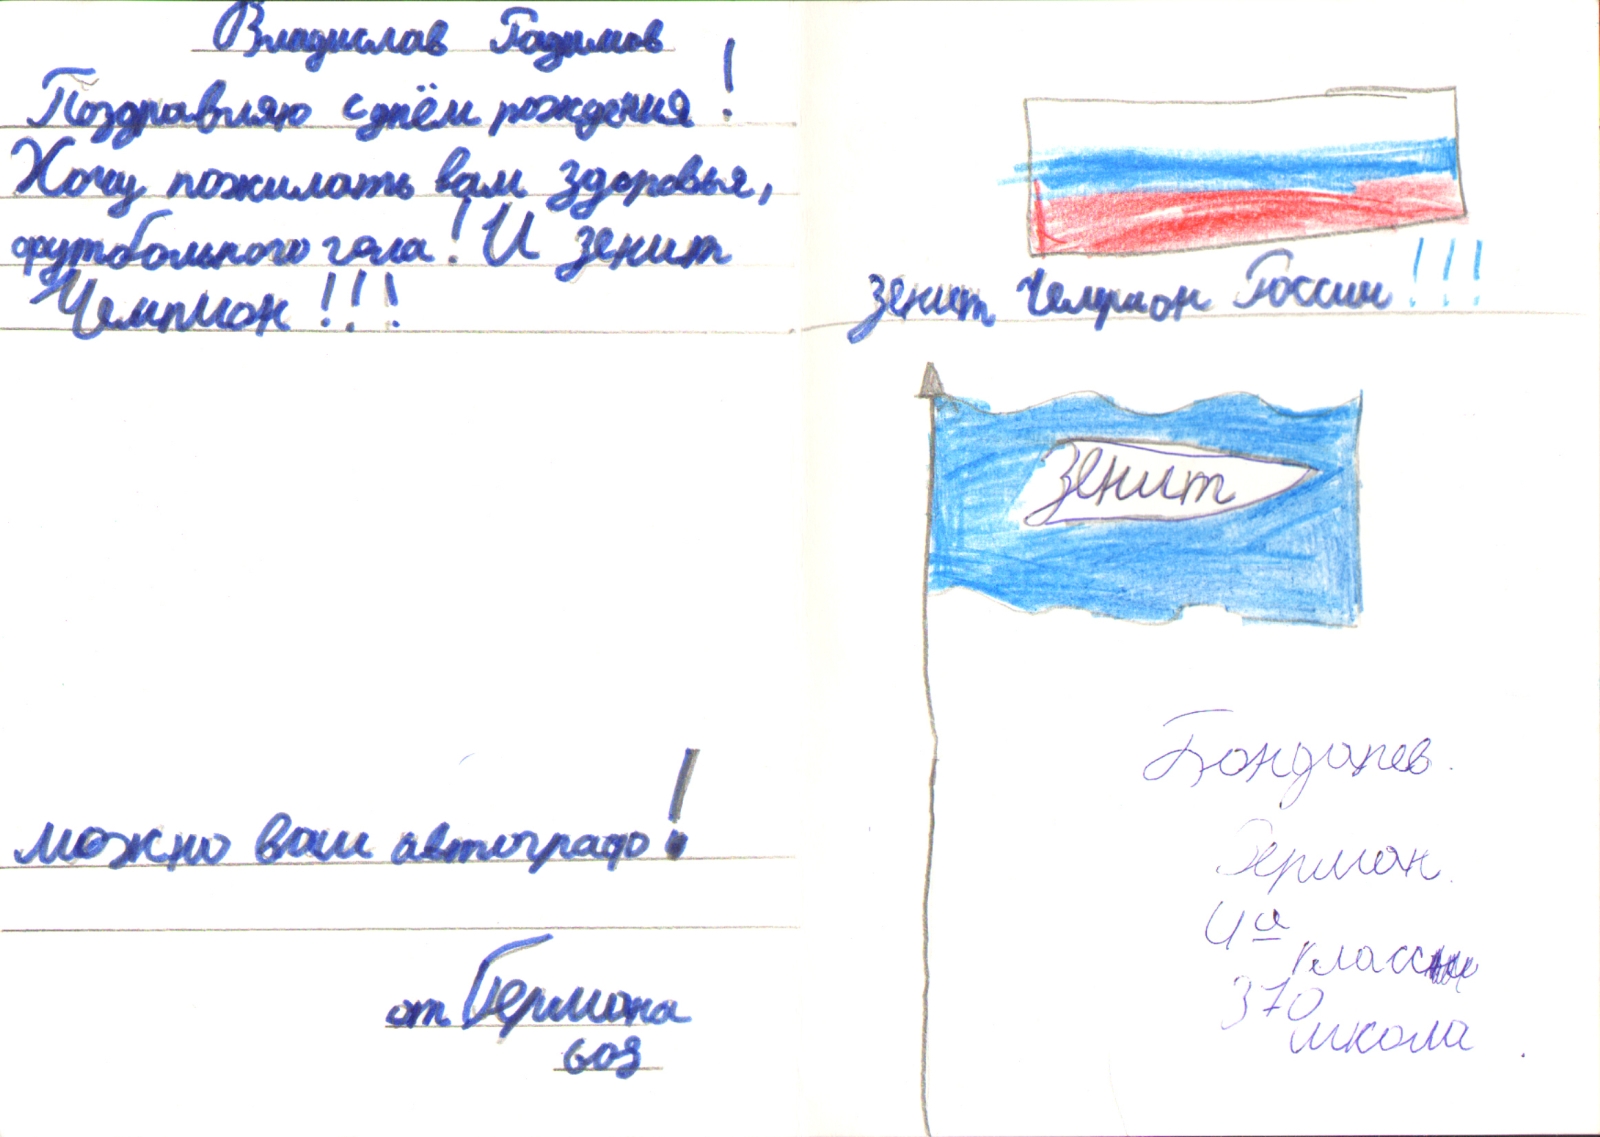 Владислав Радимов
Поздравляю с днём рождения!
Хочу пожилать вам здоровья,
футбольного гола! И зенит
Чемпион!!!
можно ваш автограф!
от Германа
зенит Чемпион России!!!
зенит
Бондарев.
Герман.
4а
класс
370
школа.